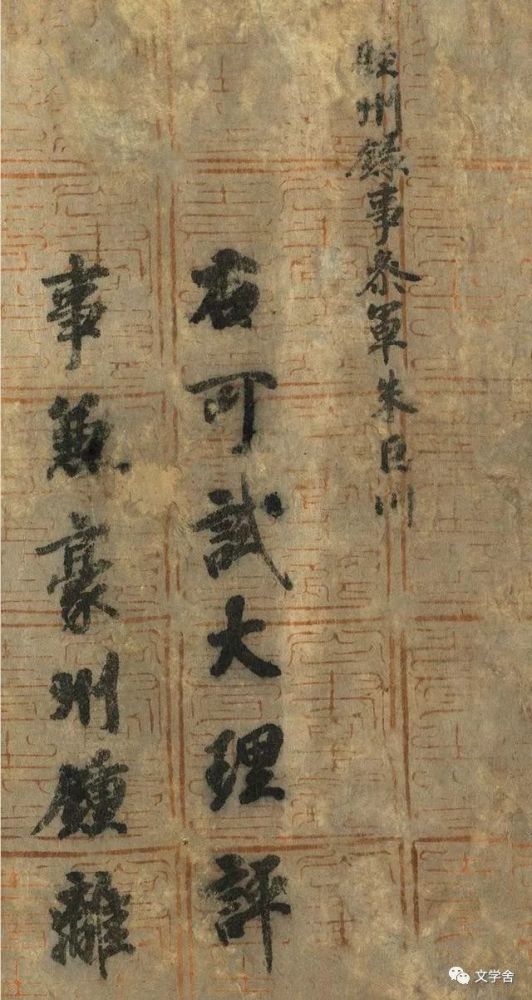 睦州録事叅軍朱巨川
右可試大理評
事兼豪州鍾離
文学舍